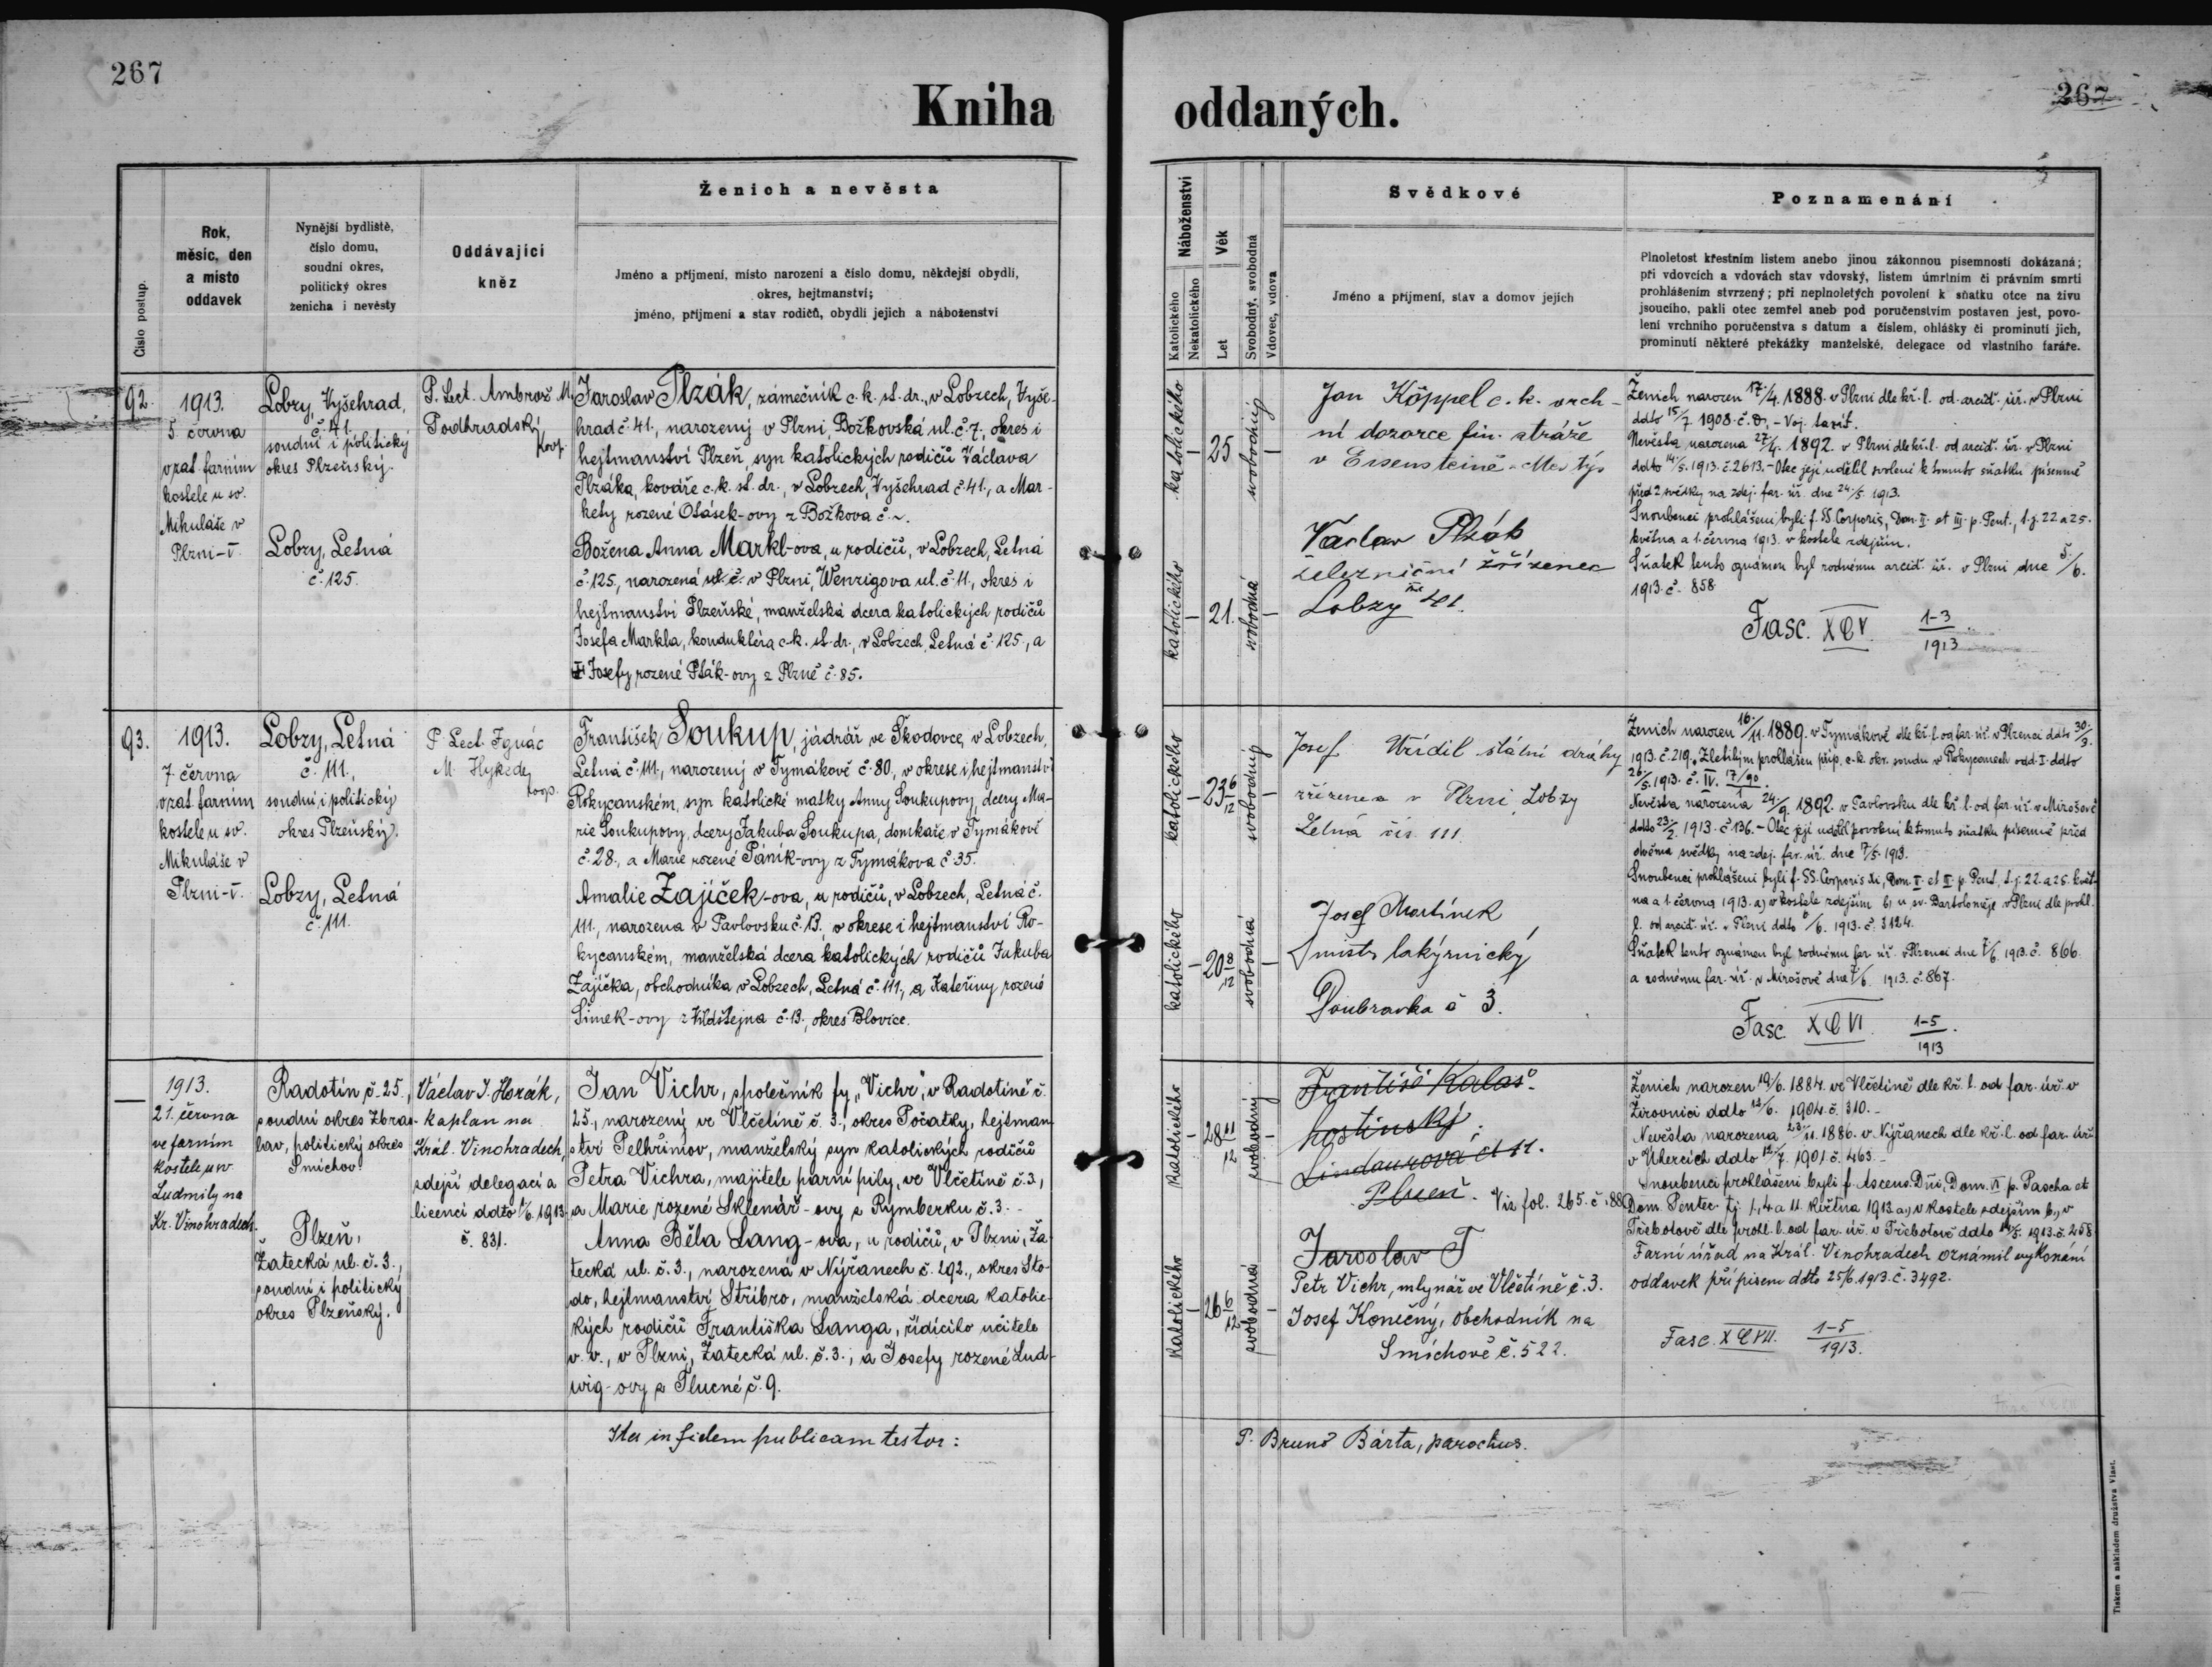 267
Kniha oddaných.
267
Číslo postup.
Rok,
měsíc, den
a místo
oddavek
Nynější bydliště,
číslo domu,
soudní okres,
politický okres
ženicha i nevěsty
Oddávající
kněz
Ženich a nevěsta
Jméno a příjmení, místo narození a číslo domu, někdejší obydlí,
okres, hejtmanství;
jméno, příjmení a stav rodičů, obydlí jejich a náboženství
Náboženství
Katolického
Nekatolického
Věk
Let
Svobodný, svobodná
Vdovec, vdova
Svědkové
Jméno a příjmení, stav a domov jejich
Poznamenání
Plnoletost křestním listem anebo jinou zákonnou písemností dokázaná;
při vdovcích a vdovách stav vdovský, listem úmrtním či právním smrti
prohlášením stvrzený; při neplnoletých povolení k sňatku otce na živu
jsoucího, pakli otec zemřel aneb pod poručenstvím postaven jest, povo-
lení vrchního poručenstva s datum a číslem, ohlášky či prominutí jich,
prominutí některé překážky manželské, delegace od vlastního faráře.
92.
1913.
5. června
v zat. farním
kostele u sv.
Mikuláše v
Plzni-V.
Lobzy, Vyšehrad,
č. 41.
soudní i politický
okres Plzeňský.
Lobzy, Letná
č. 125.
P. Lect. Ambrož M.
Podhradský
koop.
Jaroslav Plzák, zámečník c. k. st. dr., v Lobzech, Vyše-
hrad č. 41., narozený v Plzni, Božkovská ul. č. 7., okres i
hejtmanství Plzeň, syn katolických rodičů Václava
Plzáka, kováře c. k. st. dr., v Lobzech, Vyšehrad č. 41., a Mar-
kety rozené Otásek-ovy z Božkova č. ~.
Božena Anna Markl-ova, u rodičů, v Lobzech, Letná
č. 125, narozená ul. č. v Plzni, Wenzigova ul. č. 11., okres i
hejtmanství Plzeňské, manželská dcera katolických rodičů
Josefa Markla, konduktéra c. k. st. dr., v Lobzech, Letná č. 125., a
Josefy rozené Pták-ovy z Plzně č. 85.
katolického
25
svobodný
katolického
21.
svobodná
Jan Köppel c. k. vrch-
ní dozorce fin. stráže
v Eisensteině-Městys
Václav Plzák
železniční zřízenec
Lobzy 41.
Ženich narozen 17./4. 1888. v Plzni dle kř. l. od arciď. úř. v Plzni
ddto 15/7 1908. č. D. - Voj. taxít.
Nevěsta narozena 27/4. 1892. v Plzni dle kř. l. od arciď. úř. v Plzni
ddto 14./5. 1913. č. 2613. - Otec její udělil svolení k tomuto sňatku písemně
před 2 svědky na zdej. far. úř. dne 24./5. 1913.
Snoubenci prohlášeni byli f. SS. Corporis, Dom. II. et III. p. Pent., t. j. 22 a 25.
května a 1. června 1913. v kostele zdejším.
Sňatek tento oznámen byl rodnému arciď. úř. v Plzni dne 5./6.
1913. č. 858
Fasc. XCV. 1-3/1913
93.
1913.
7. června
v zat. farním
kostele u sv.
Mikuláše v
Plzni-V.
Lobzy, Letná
č. 111.,
soudní i politický
okres Plzeňský.
Lobzy, Letná
č. 111.
P. Lect. Ignác
M. Hykede
koop.
František Soukup, jádrář ve Škodovce, v Lobzech,
Letná č. 111., narozený v Tymákově č. 80, v okrese i hejtmanství
Rokycanském, syn katolické matky Anny Soukupovy, dcery Ma-
rie Soukupovy, dcery Jakuba Soukupa, domkaře v Tymákově
č. 28., a Marie rozené Páník-ovy z Tymákova č. 35.
Amalie Zajíček-ova, u rodičů, v Lobzech, Letná č.
111., narozena v Pavlovsku č. 13., v okrese i hejtmanství Ro-
kycanském, manželská dcera katolických rodičů Jakuba
Zajíčka, obchodníka v Lobzech, Letná č. 111., a Kateřiny rozené
Šimek-ovy z Vildštejna č. 13., okres Blovice.
katolického
23 6/12
svobodný
katolického
20 8/12
svobodná
Josef Wřídil státní dráhy
zřízenec v Plzni Lobzy
Letná čís. 111.
Josef Martínek
mistr lakýrnický
Doubravka č 3.
Ženich narozen 16./11. 1889. v Tymákově dle kř. l. od far. úř. v Plzenci ddto 30./3.
1913. č. 219. Zletilým prohlášen příp. c. k. okr. soudu v Rokycanech odd. I. ddto
26/5. 1913. č. IV. 17/90 1.
Nevěsta narozena 24/9. 1892. v Pavlovsku dle kř. l. od far. úř. v Mirošově
ddto 23/2. 1913. č. 136. - Otec její udělil povolení k tomuto sňatku písemně před
dvěma svědky na zdej. far. úř. dne 7/5. 1913.
Snoubenci prohlášeni byli f. SS. Corporis Xi, Dom. II. et III. p. Pent., t. j. 22. a 25. květ-
na a 1. června 1913. a) v kostele zdejším b) u sv. Bartoloměje v Plzni dle prohl.
l. od arciď. úř. v Plzni ddto 6/6. 1913. č. 3124.
Sňatek tento oznámen byl rodnému far. úř. v Plzenci dne 7/6. 1913. č. 866.
a rodnému far. úř. v Mirošově dne 7/6. 1913. č. 867.
Fasc. XCVI. 1-5/1913
—
1913.
21. června
ve farním
kostele u sv.
Ludmily na
Kr. Vinohradech.
Radotín č. 25.,
soudní okres Zbra-
slav, politický okres
Smíchov
Plzeň,
Žatecká ul. č. 3.,
soudní i politický
okres Plzeňský.
Václav J. Horák,
kaplan na
Král. Vinohradech,
zdejší delegací a
licencí ddto 1/6. 1913.
č. 831.
Jan Vichr, společník fy „Vichr", v Radotíně č.
25., narozený ve Vlčetíně č. 3., okres Počátky, hejtman-
ství Pelhřimov, manželský syn katolických rodičů
Petra Vichra, majitele parní pily, ve Vlčetíně č. 3.,
a Marie rozené Sklenář-ovy z Rymberku č. 3. -
Anna Běla Lang-ova, u rodičů, v Plzni, Ža-
tecká ul. č. 3., narozená v Nýřanech č. 292., okres Sto-
do, hejtmanství Stříbro, manželská dcera katolic-
kých rodičů Františka Langa, řídícího učitele
v. v., v Plzni, Žatecká ul. č. 3., a Josefy rozené Lud-
wig-ovy z Plucné č. 9.
katolického
28 11/12
svobodný
katolického
26 6/12
svobodná
Františ Kalaš
hostinský
Lindaurova č 11.
Plzeň. Viz fol. 265. č. 88
Jaroslav T
Petr Vichr, mlynář ve Vlčetíně č. 3.
Josef Konečný, obchodník na
Smíchově č. 522.
Ženich narozen 19/6. 1884. ve Vlčetíně dle kř. l. od far. úř. v
Žirovnici ddto 13/6. 1904. č. 310. -
Nevěsta narozena 23/11. 1886. v Nýřanech dle kř. l. od far. úř.
v Úhercích ddto 12/7. 1901. č. 463. -
Snoubenci prohlášeni byli f. Ascens. Dñi, Dom. VI p. Pascha et
Dom. Pentec. tj. 1, 4 a 11. května 1913. a) v kostele zdejším b) v
Třebotově dle prohl. l. od far. úř. v Třebotově ddto 14/5. 1913. č. 258.
Farní úřad na Král. Vinohradech oznámil vykonání
oddavek přípisem ddto 25/6. 1913. č. 3492.
Fasc. XCVII. 1-5/1913.
Ita in fidem publicam testor:
P. Bruno Bárta, parochus.
Tiskem a nákladem družstva Vlast.